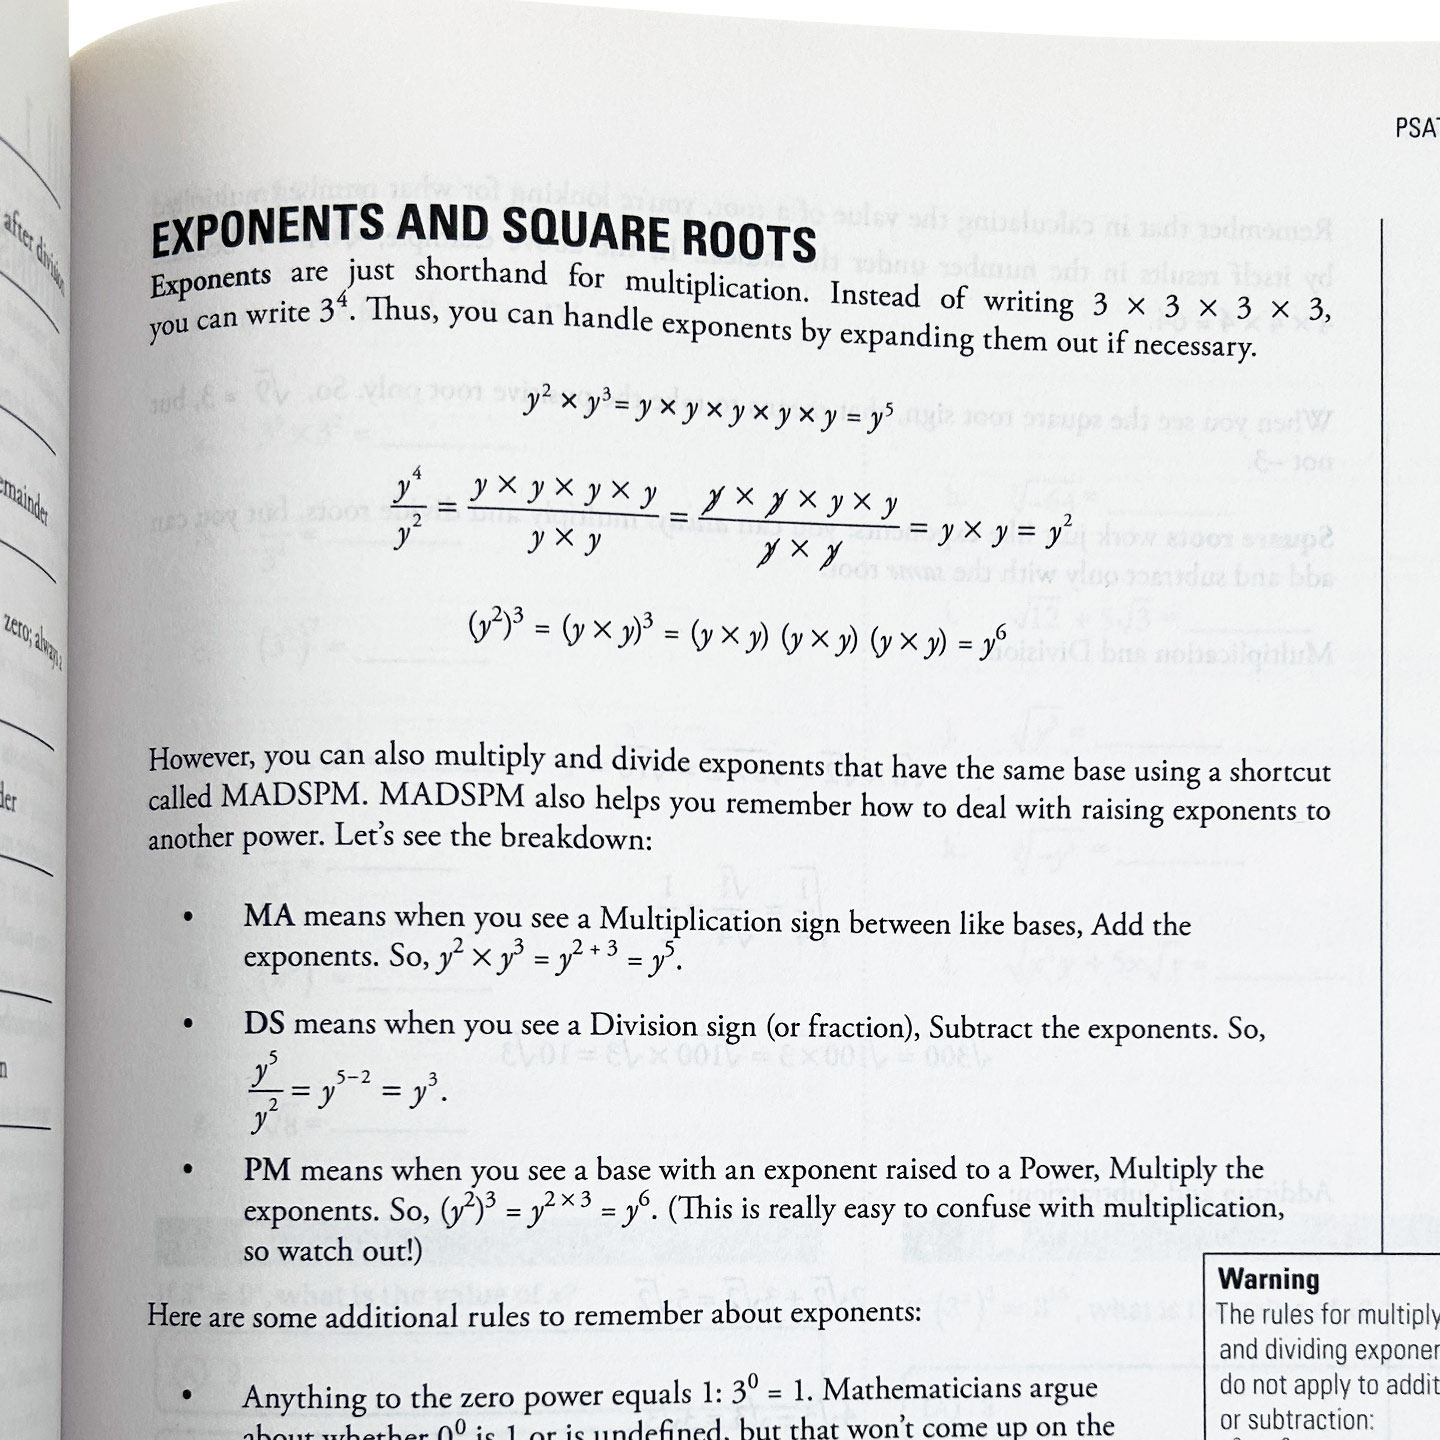 PSAT
EXPONENTS AND SQUARE ROOTS
Exponents are just shorthand for multiplication. Instead of writing 3 × 3 × 3 × 3,
you can write 3⁴. Thus, you can handle exponents by expanding them out if necessary.
y² × y³ = y × y × y × y × y = y⁵
y⁴/y² = (y × y × y × y)/(y × y) = (y × y × y × y)/(y × y) = y × y = y²
(y²)³ = (y × y)³ = (y × y) (y × y) (y × y) = y⁶
However, you can also multiply and divide exponents that have the same base using a shortcut
called MADSPM. MADSPM also helps you remember how to deal with raising exponents to
another power. Let's see the breakdown:
• MA means when you see a Multiplication sign between like bases, Add the
exponents. So, y² × y³ = y²⁺³ = y⁵.
• DS means when you see a Division sign (or fraction), Subtract the exponents. So,
y⁵/y² = y⁵⁻² = y³.
• PM means when you see a base with an exponent raised to a Power, Multiply the
exponents. So, (y²)³ = y²ˣ³ = y⁶. (This is really easy to confuse with multiplication,
so watch out!)
Here are some additional rules to remember about exponents:
• Anything to the zero power equals 1: 3⁰ = 1. Mathematicians argue
about whether 0⁰ is 1 or is undefined, but that won't come up on the
Warning
The rules for multiply
and dividing exponen
do not apply to addit
or subtraction:
after division
remainder
zero; always a
der
n